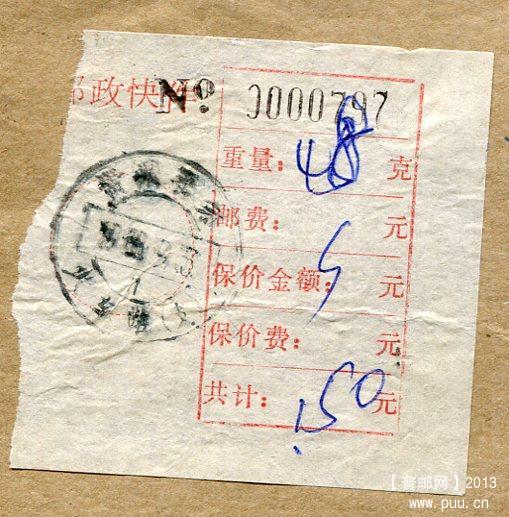 邮政快件 No 0000797
重量：48 克
邮费： 元
保价金额： 元
保价费： 元
共计：.50 元
【普邮网】2013
www.puu.cn